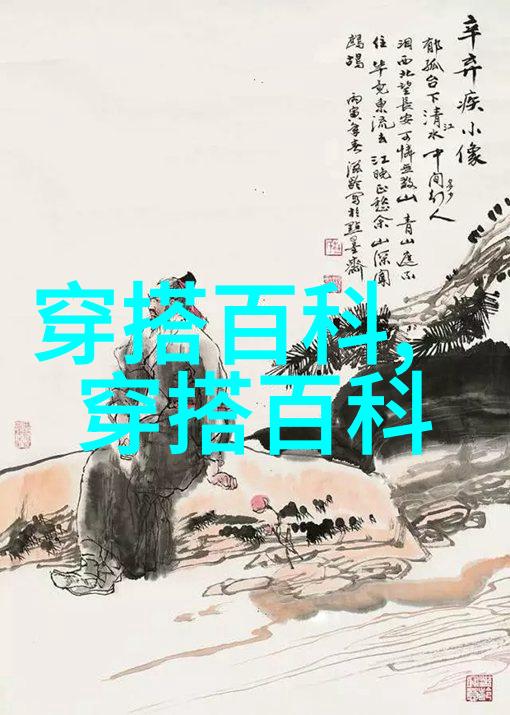 辛弃疾小像
郁孤台下清江水中间多少行人
泪西北望長安可憐無数山青山遮不
住毕竟東流去江晚正愁余山深闻
鹧鸪 丙寅年春
穿搭百科,
穿搭百科